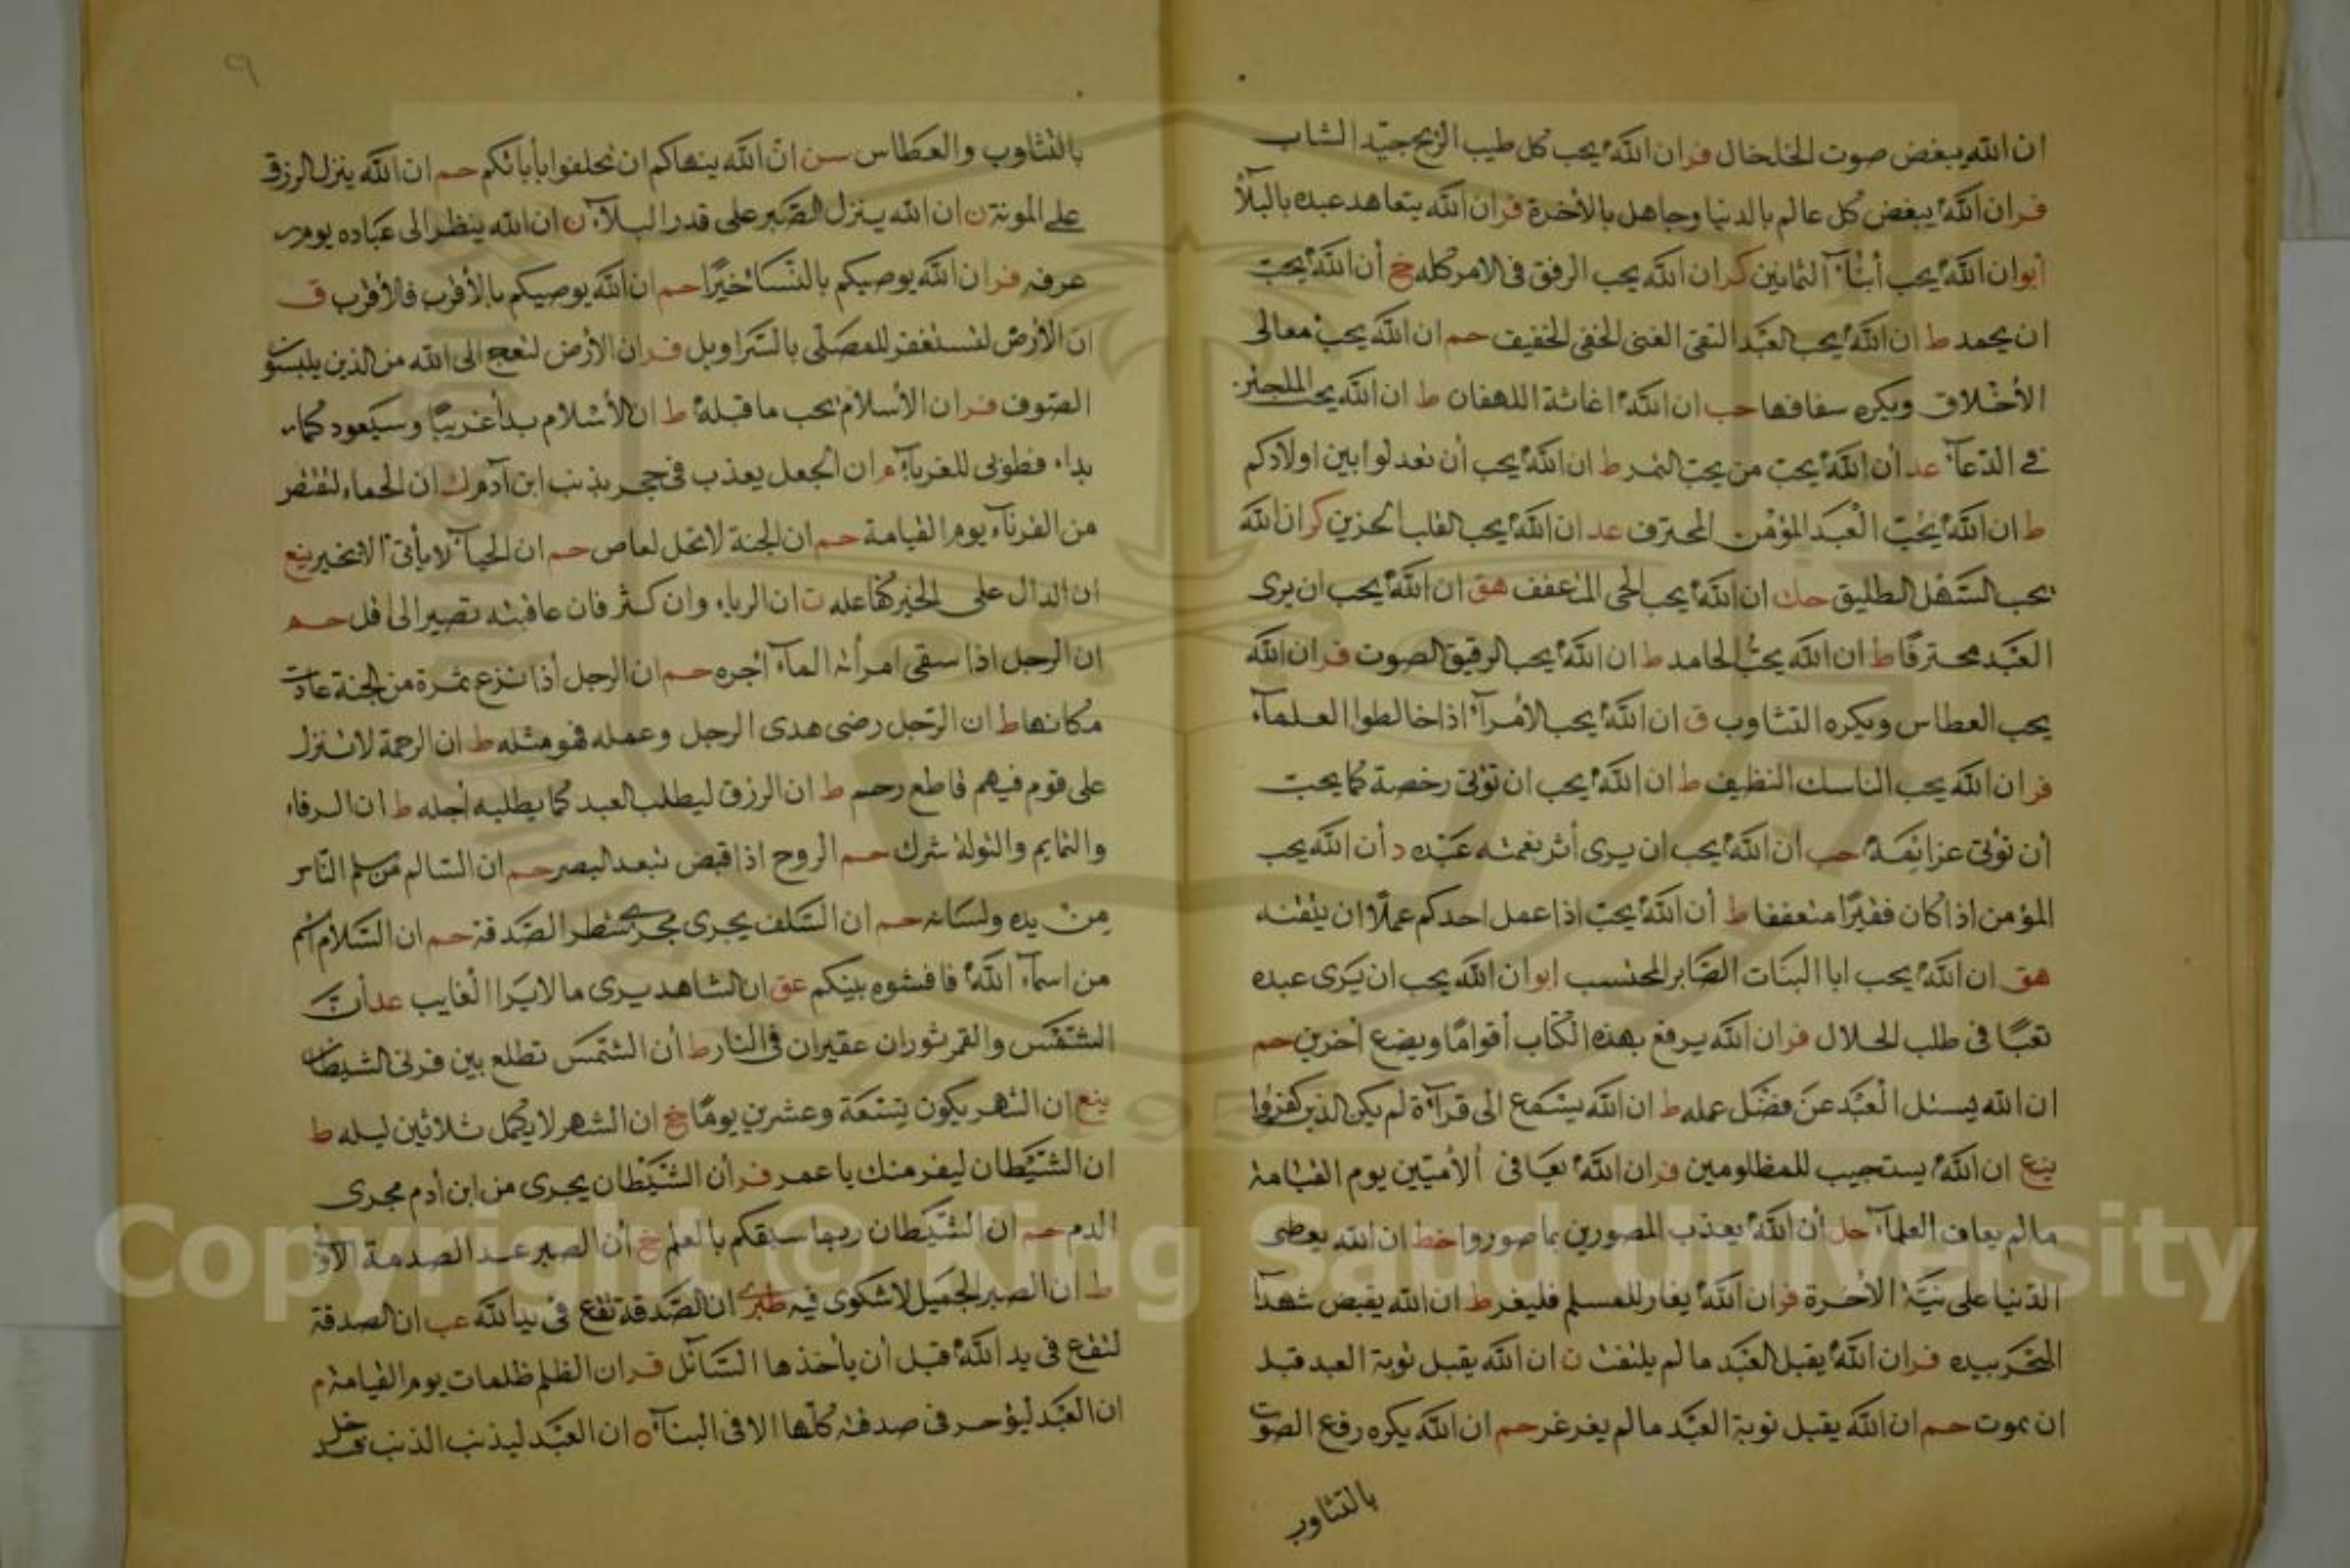 ان الله يبغض صوت الخلخال فر ان الله يحب كل طيب الريح جيّد الشاب
فر ان الله يبغض كل عالم بالدنيا وجاهل بالأخرة فر ان الله يتعاهد عبده بالبلآ
ابو ان الله يحب أبنآ الثمانين كر ان الله يحب الرفق فى الامر كله خ أن الله يحب
ان يحمد ط ان الله يحب العبد التقى الغنى الخفى الخفيف حم ان الله يحب معالى
الأخلاق ويكره سفافها حب ان الله اغاثة اللهفان ط ان الله يحب الملحين
فى الدعآ عد أن الله يحب من يحب التمر ط ان الله يحب أن تعدلوا بين اولادكم
ط ان الله يحبّ العبد المؤمن المحترف عد ان الله يحب القلب الحزين كر ان الله
يحب السهل الطليق حك ان الله يحب الحى المتعفف هق ان الله يحب ان يرى
العبد محترفا ط ان الله يحب الحامد ط ان الله يحب الرقيق الصوت فر ان الله
يحب العطاس ويكره التثاوب ق ان الله يحب الأمرآ اذا خالطوا العلمآ
فر ان الله يحب الناسك النظيف ط ان الله يحب ان تؤتى رخصة كما يحب
أن تؤتى عزائمه حب أن الله يحب ان يرى أثر نعمته عبده د أن الله يحب
المؤمن اذا كان فقيرًا متعففا ط أن الله يحبّ اذا عمل احدكم عملًا ان يتقنه
هق ان الله يحب ابا البنات الصابر المحتسب ابو ان الله يحب ان يرى عبده
تعبًا فى طلب الحلال فر ان الله يرفع بهذه الكتاب أقوامًا ويضع أخرين حم
ان الله يسئل العبد عن فضل عمله ط ان الله يسمع الى قرآة لم يكن الذين كفروا
ينع ان الله يستجيب للمظلومين فر ان الله يعافى الأميّين يوم القيامة
مالم يعاف العلمآ حل أن الله يعذب المصورين بما صوروا خط ان الله يعطى
الدنيا على نيّة الأخرة فر ان الله يغار للمسلم فليغر ط ان الله يقبض شهدآ
البحر بيده فر ان الله يقبل العبد ما لم يلتفت ن ان الله يقبل توبة العبد قبل
ان يموت حم ان الله يقبل توبة العبد مالم يغرغر حم ان الله يكره رفع الصوت
بالتثاوب
٩
بالتثاوب والعطاس سن انّ الله ينهاكم ان تحلفوا بأبائكم حم ان الله ينزل الرزق
على المونة ن ان الله ينزل الصبر على قدر البلآ ن ان الله ينظر الى عباده يوم
عرفه فر ان الله يوصيكم بالنسآ خيرًا حم ان الله يوصيكم بالأقرب فالأقرب ق
ان الأرض لتستغفر للمصلى بالسراويل فر ان الأرض لتعج الى الله من الذين يلبسون
الصوف فر ان الأسلام يجب ما قبله ط ان الأسلام بدأ غريبًا وسيعود كما
بداء فطوبى للغربآ م ان الجعل يعذب فى حجر بذنب ابن آدم ك ان الجماء لتقتص
من القرنآ يوم القيامة حم ان الجنة لا تحل لعاص حم ان الحيآ لا يأتى الا بخير ينع
ان الدال على الخير كفاعله ت ان الرباء وان كثر فان عاقبته تصير الى قل حم
ان الرجل اذا سقى امرأته المآ أجره حم ان الرجل أذا نزع ثمرة من الجنة عادت
مكانها ط ان الرّجل رضى هدى الرجل وعمله فهو مثله ط ان الرحمة لا تنزل
على قوم فيهم قاطع رحم ط ان الرزق ليطلب العبد كما يطلبه أجله ط ان الرقاء
والتمايم والتولة شرك حم الروح اذا قبض تبعه البصر حم ان السالم من سلم الناس
من يده ولسانه حم ان السلف يجرى مجرى شطر الصدقة حم ان السلام اسم
من اسمآ الله فافشوه بينكم عق ان الشاهد يرى ما لا يرا الغايب عد أن
الشمس والقمر ثوران عقيران فى النار ط أن الشمس تطلع بين قرنى الشيطان
ينع ان الشهر يكون تسعة وعشرين يومًا خ ان الشهر لا يكمل ثلاثين ليله ط
ان الشيطان ليفر منك يا عمر فر أن الشيطان يجرى من ابن أدم مجرى
الدم حم ان الشيطان ربما سبقكم بالعلم خ أن الصبر عند الصدمة الأولى
ط ان الصبر الجميل لا شكوى فيه طبرى ان الصدقة تقع فى يد الله عب ان الصدقة
لتقع فى يد الله قبل أن يأخذها السآئل فر ان الظلم ظلمات يوم القيامة م
ان العبد ليؤجر فى صدقته كلها الا فى البنآ ه ان العبد ليذنب الذنب